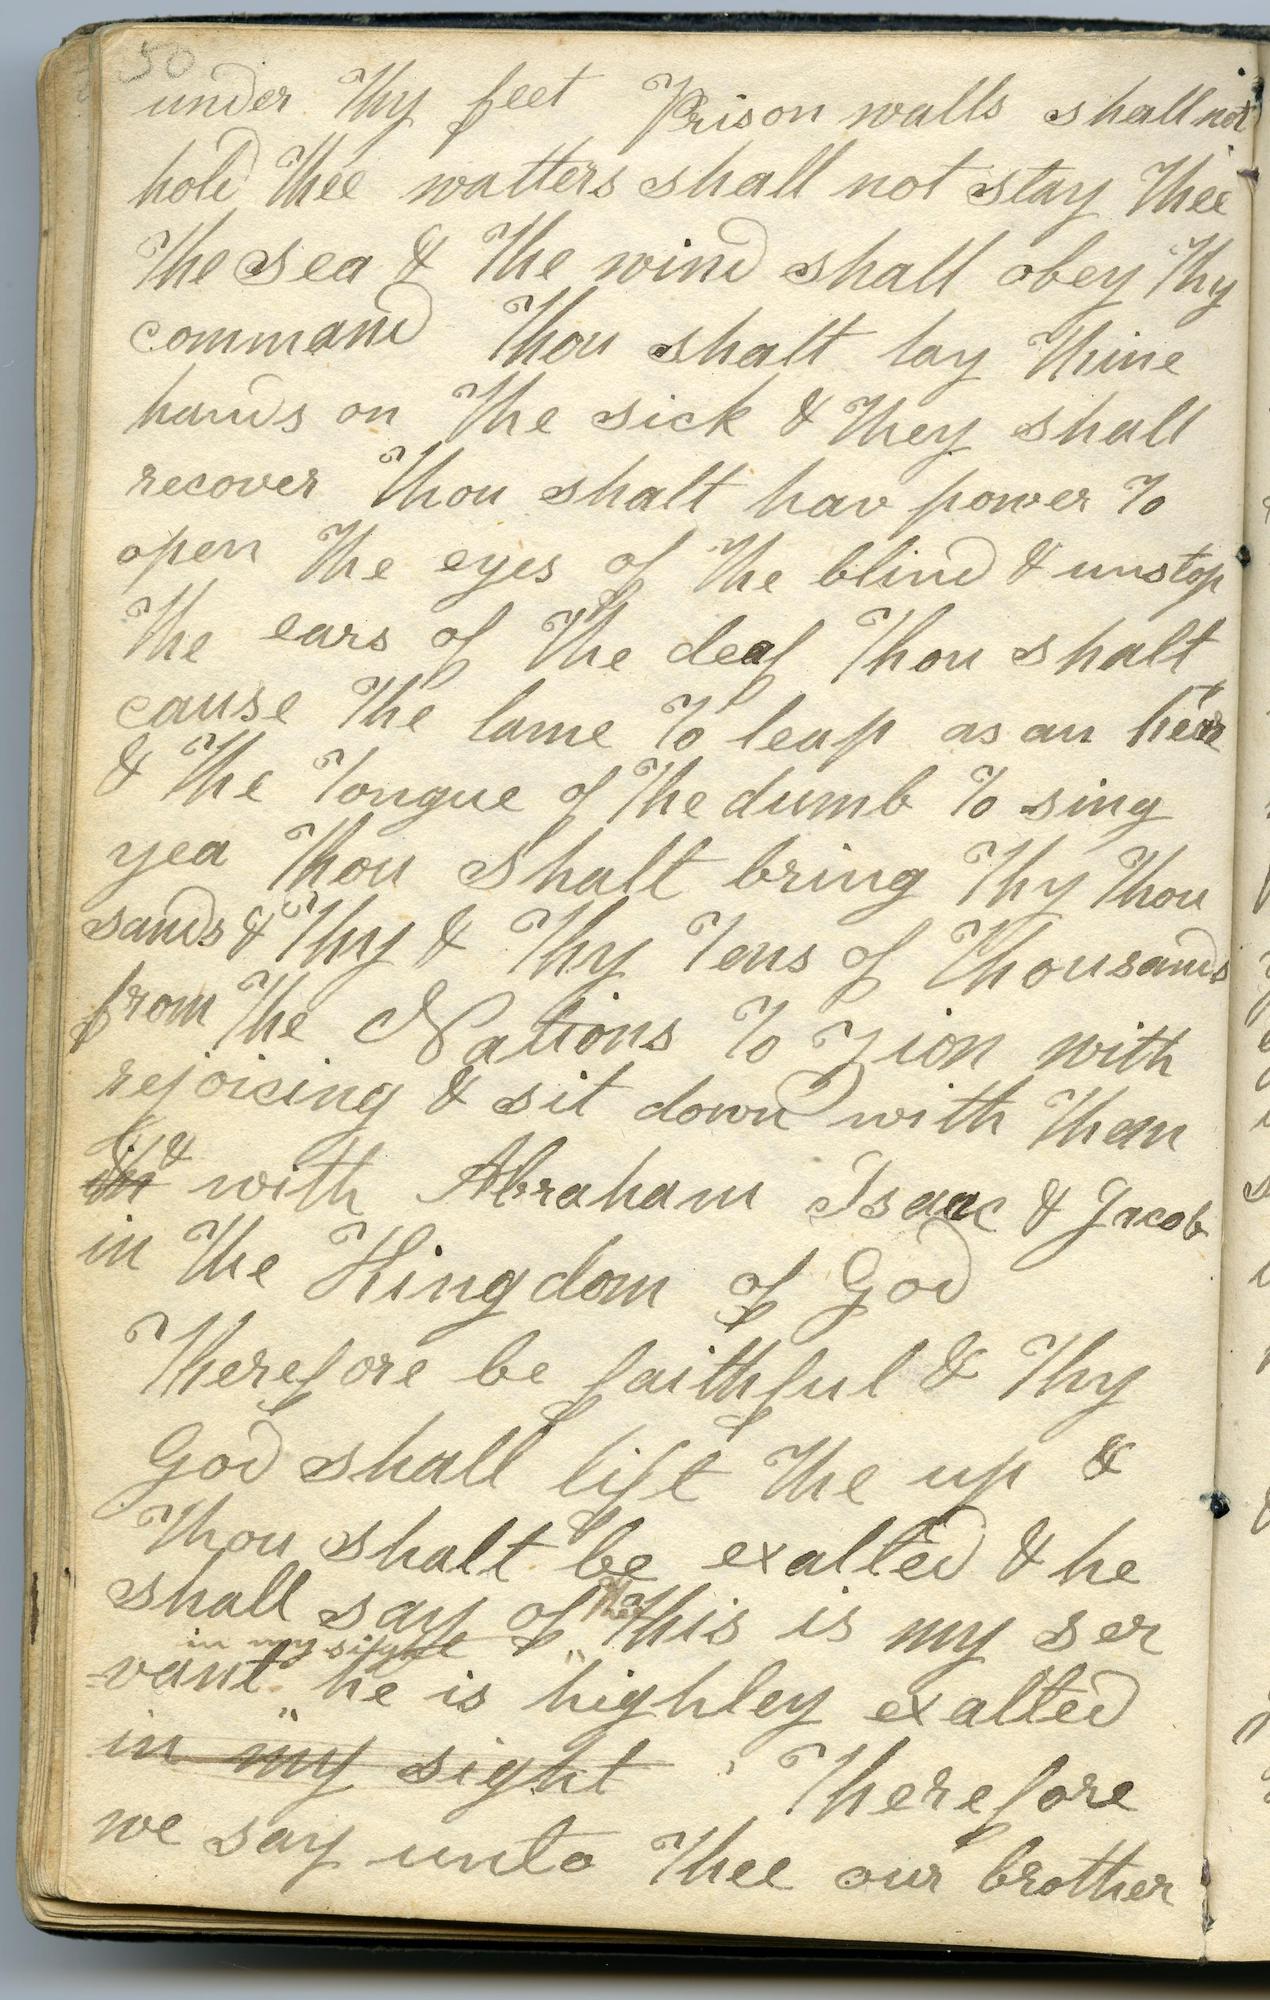 50
under thy feet Prison walls shall not
hold thee watters shall not stay thee
the sea & the wind shall obey thy
command Thou shalt lay thine
hands on the sick & they shall
recover Thou shalt hav power to
open the eyes of the blind & unstop
the ears of the deaf Thou shalt
cause the lame to leap as an
& the tongue of the dumb to sing
yea Thou shalt bring thy thou
sands & thy & thy tens of thousands
from the Nations to Zion with
rejoicing & sit down with them
& with Abraham Isaac & Jacob
in the Kingdom of God
Therefore be faithful & thy
God shall lift the up &
Thou shalt be exalted & he
shall say of thee this is my ser
in my sight
vant he is highley exalted
in my sight Therefore
we say unto thee our brother